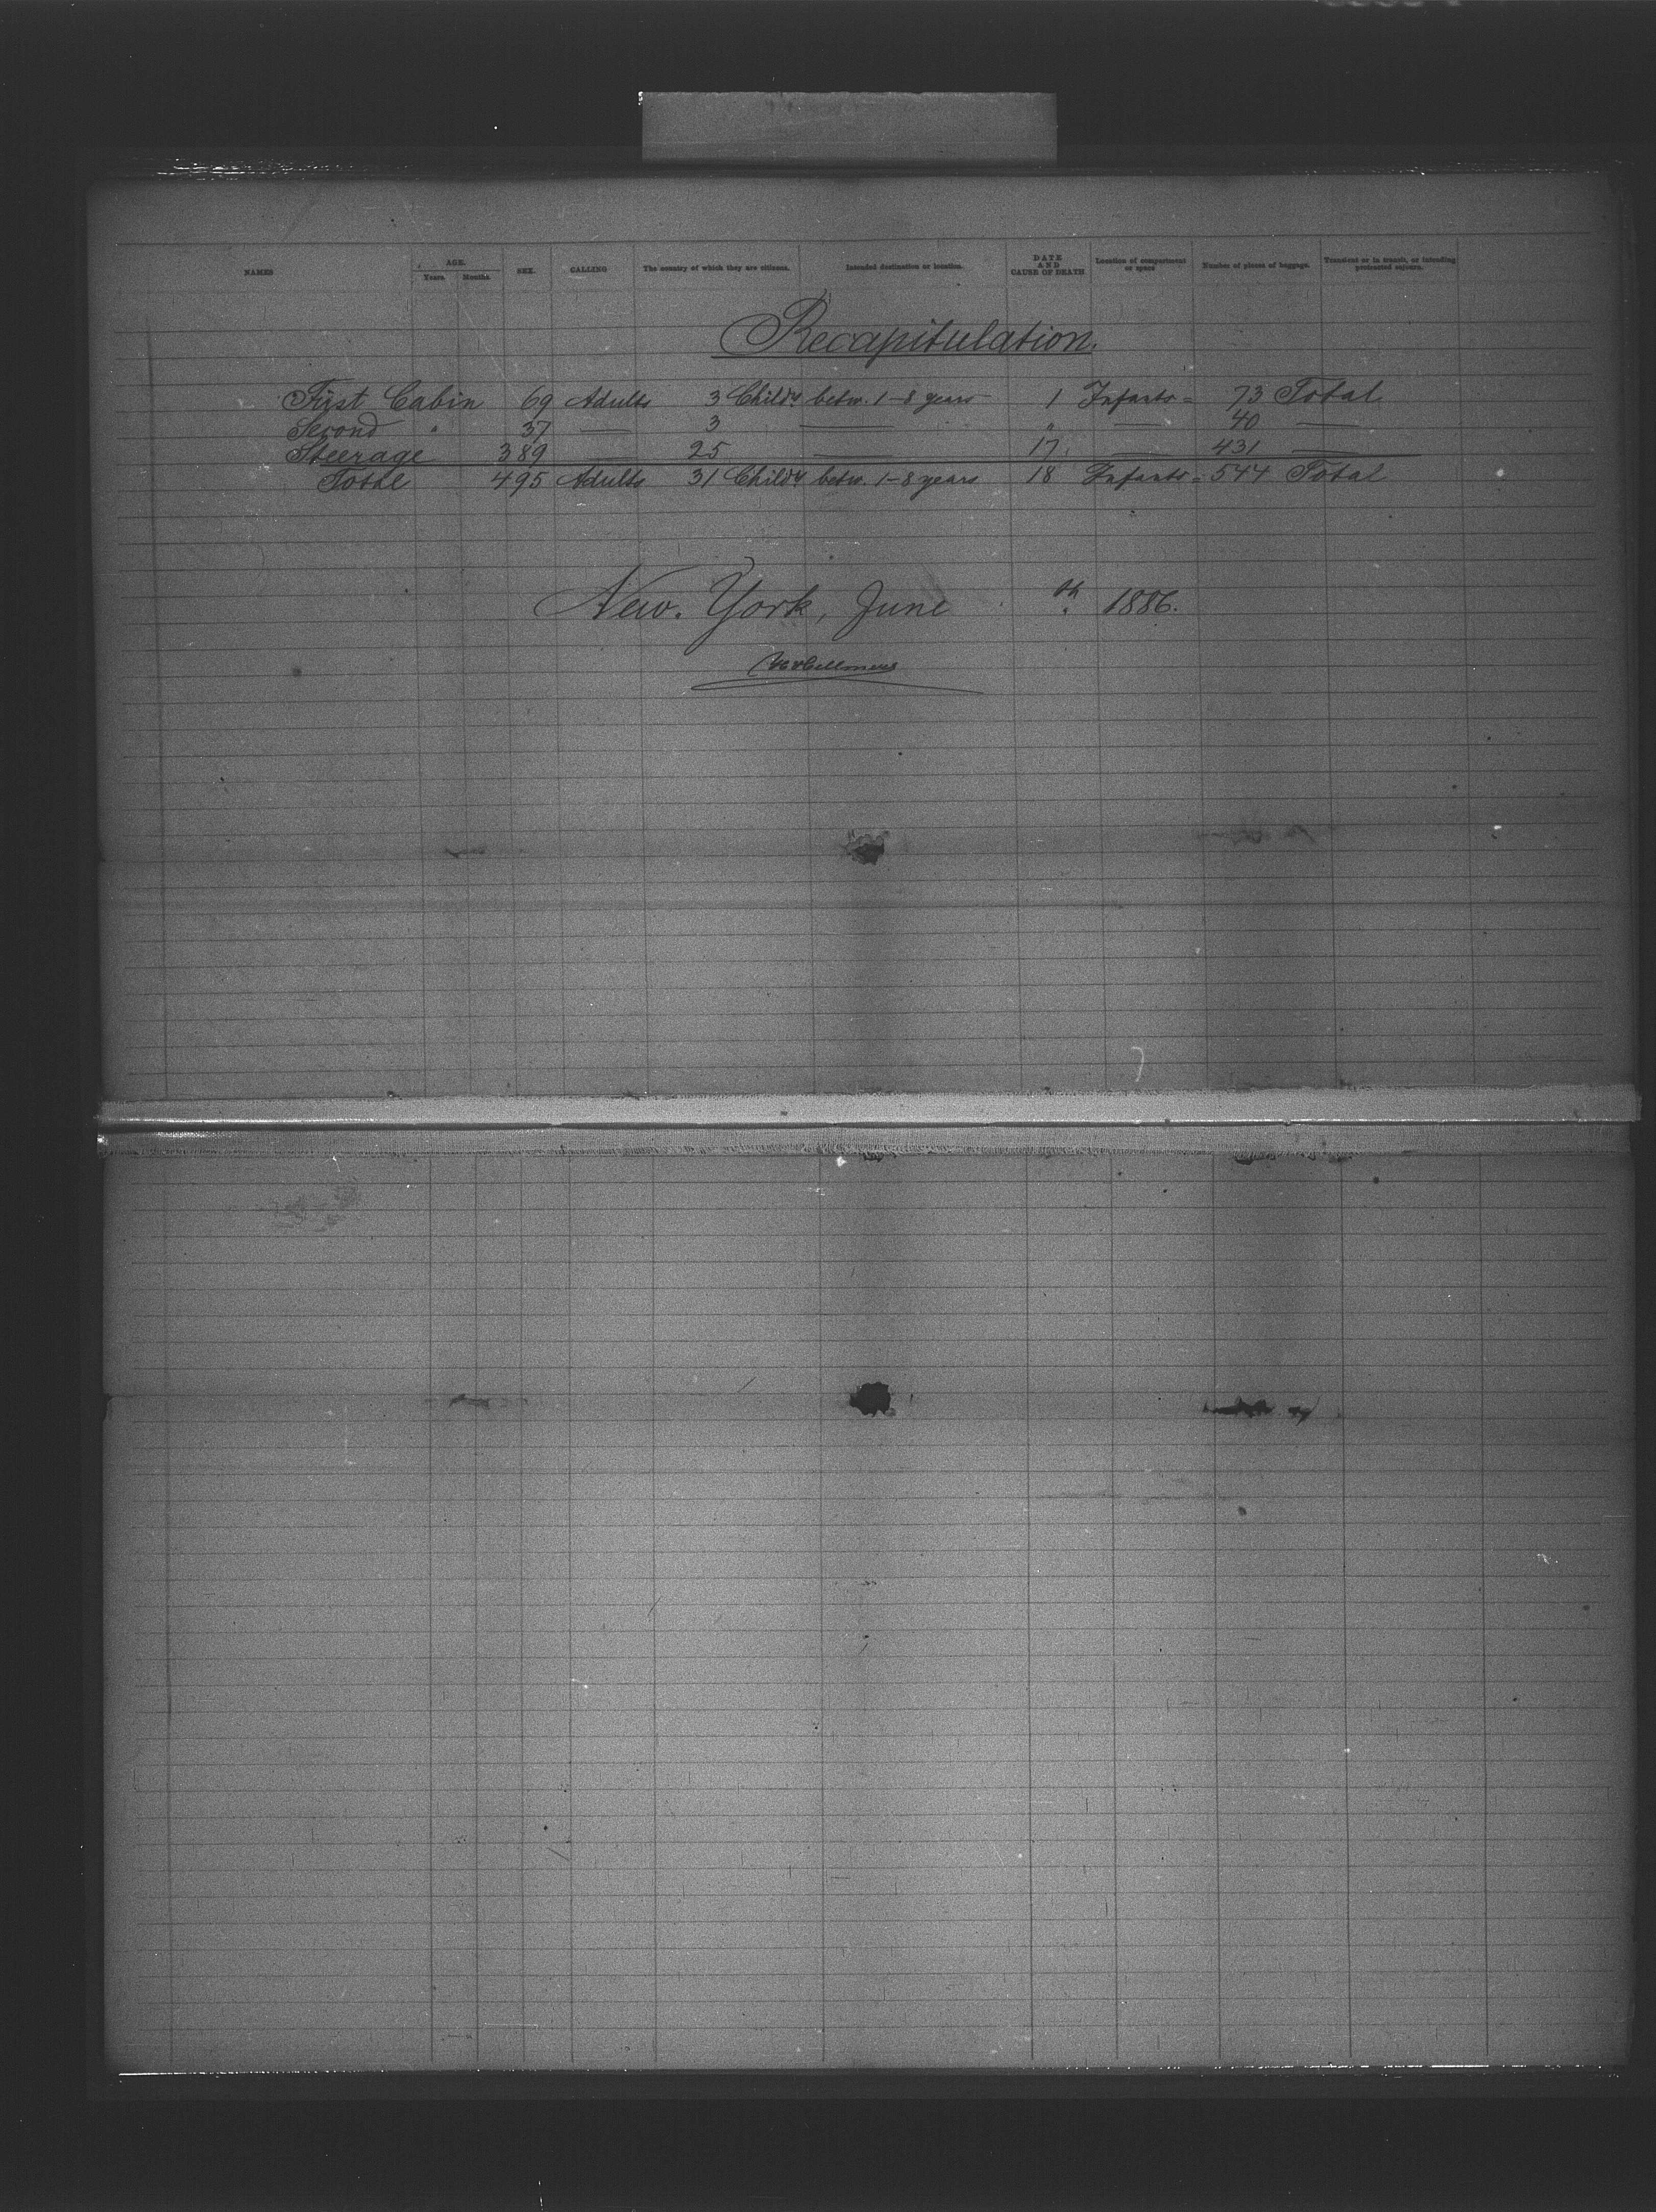 NAMES AGE. Years. Months. SEX. CALLING The country of which they are citizens. Intended destination or location. DATE AND CAUSE OF DEATH Location of compartment or space Number of pieces of baggage. Transient or in transit, or intending protracted sojourn.
Recapitulation.
First Cabin 69 Adults 3 Childr betw. 1-8 years 1 Infants = 73 Total
Second " 37 — 3 — " — 40 —
Steerage 389 — 25 — 17 — 431 —
Total 495 Adults 31 Childr betw. 1-8 years 18 Infants = 544 Total
New. York, June th 1886.